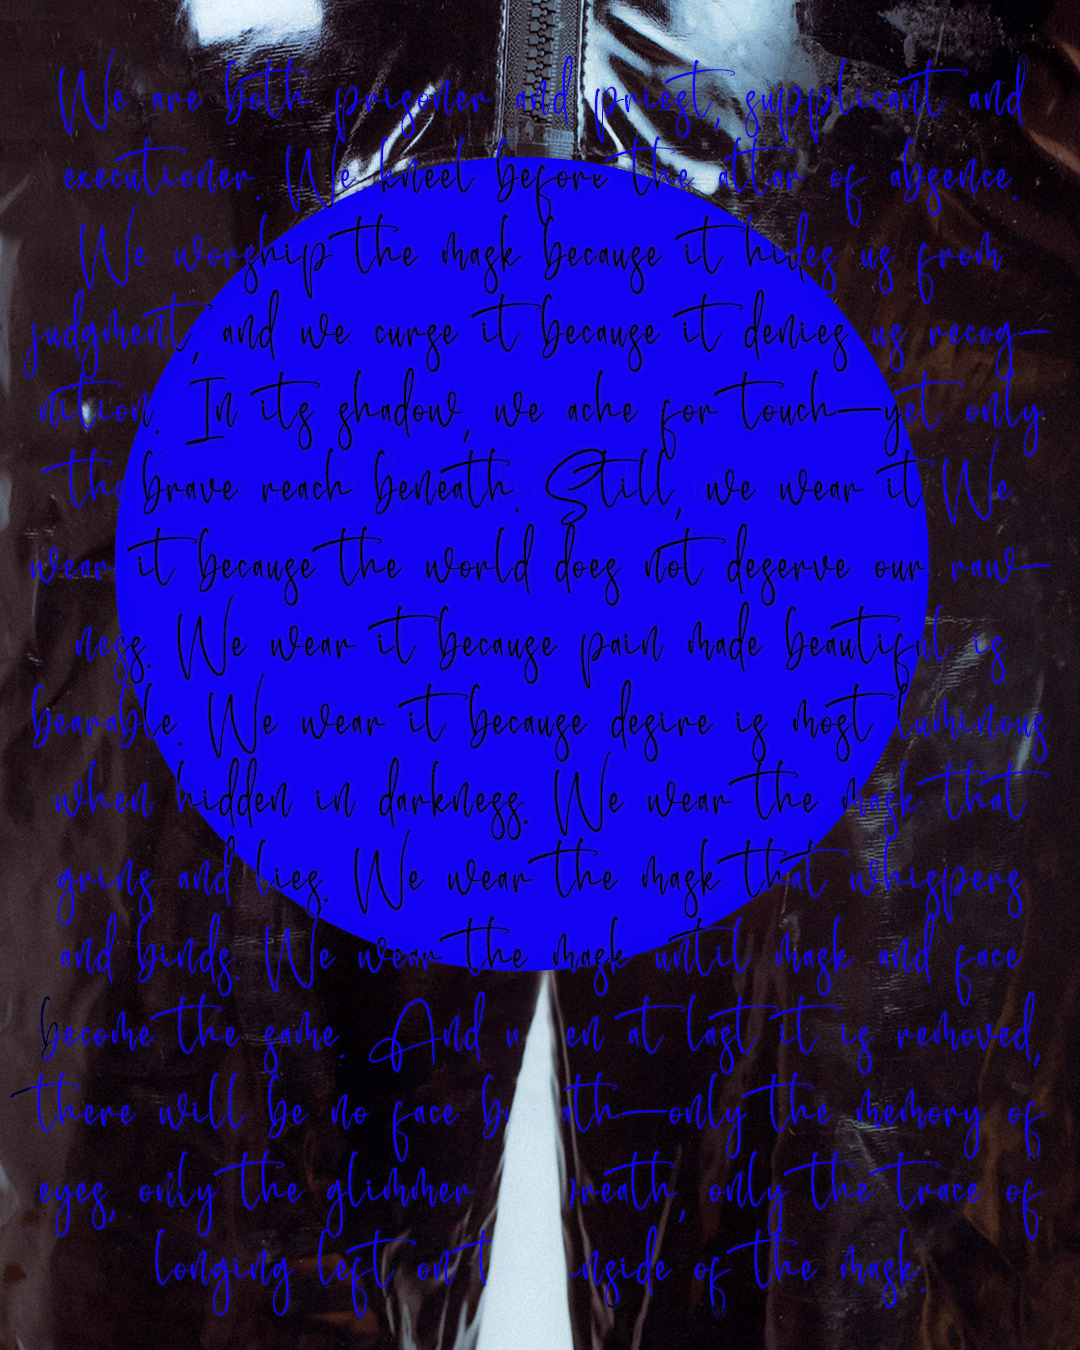 We are both prisoner and priest, supplicant and
executioner. We kneel before the altar of absence.
We worship the mask because it hides us from
judgment, and we curse it because it denies us recog—
nition. In its shadow, we ache for touch—yet only
the brave reach beneath. Still, we wear it. We
wear it because the world does not deserve our raw—
ness. We wear it because pain made beautiful is
bearable. We wear it because desire is most luminous
when hidden in darkness. We wear the mask that
grins and lies. We wear the mask that whispers
and binds. We wear the mask until mask and face
become the same. And at last it is removed,
there will be no face —only the memory of
eyes, only the glimmer breath, only the trace of
longing left on inside of the mask.